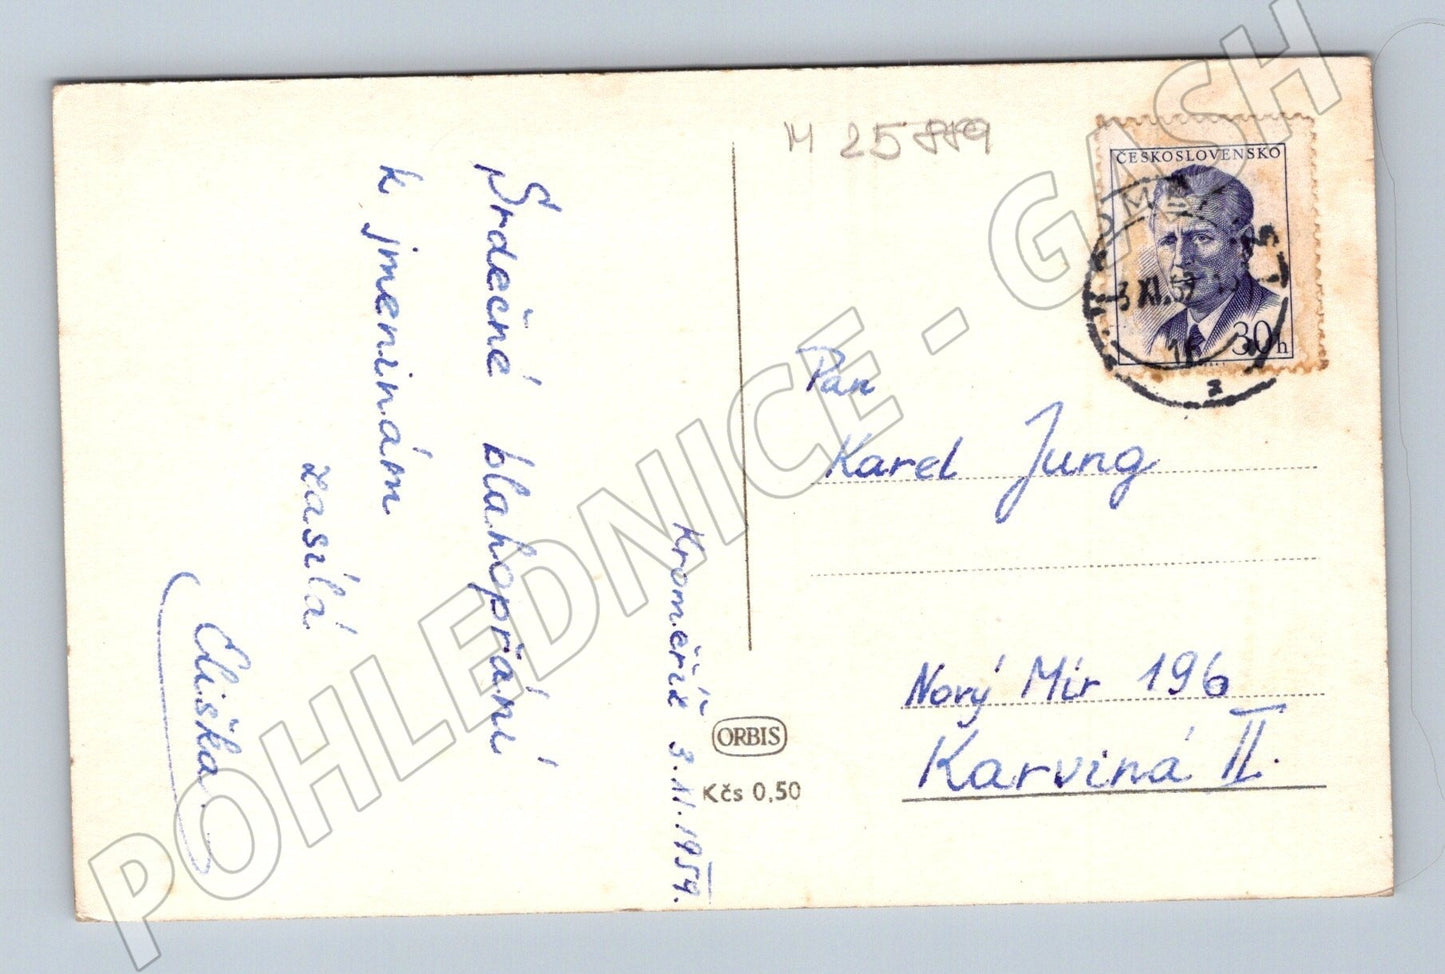 M 25889
ČESKOSLOVENSKO
30h
3 XI.57
16
Srdečné blahopřání
k jmeninám
zasílá
Eliška
Kroměříž 3.XI.1957.
Pan
Karel Jung
Nový Mír 196
Karviná II.
ORBIS
Kčs 0,50
POHLEDNICE - GASH